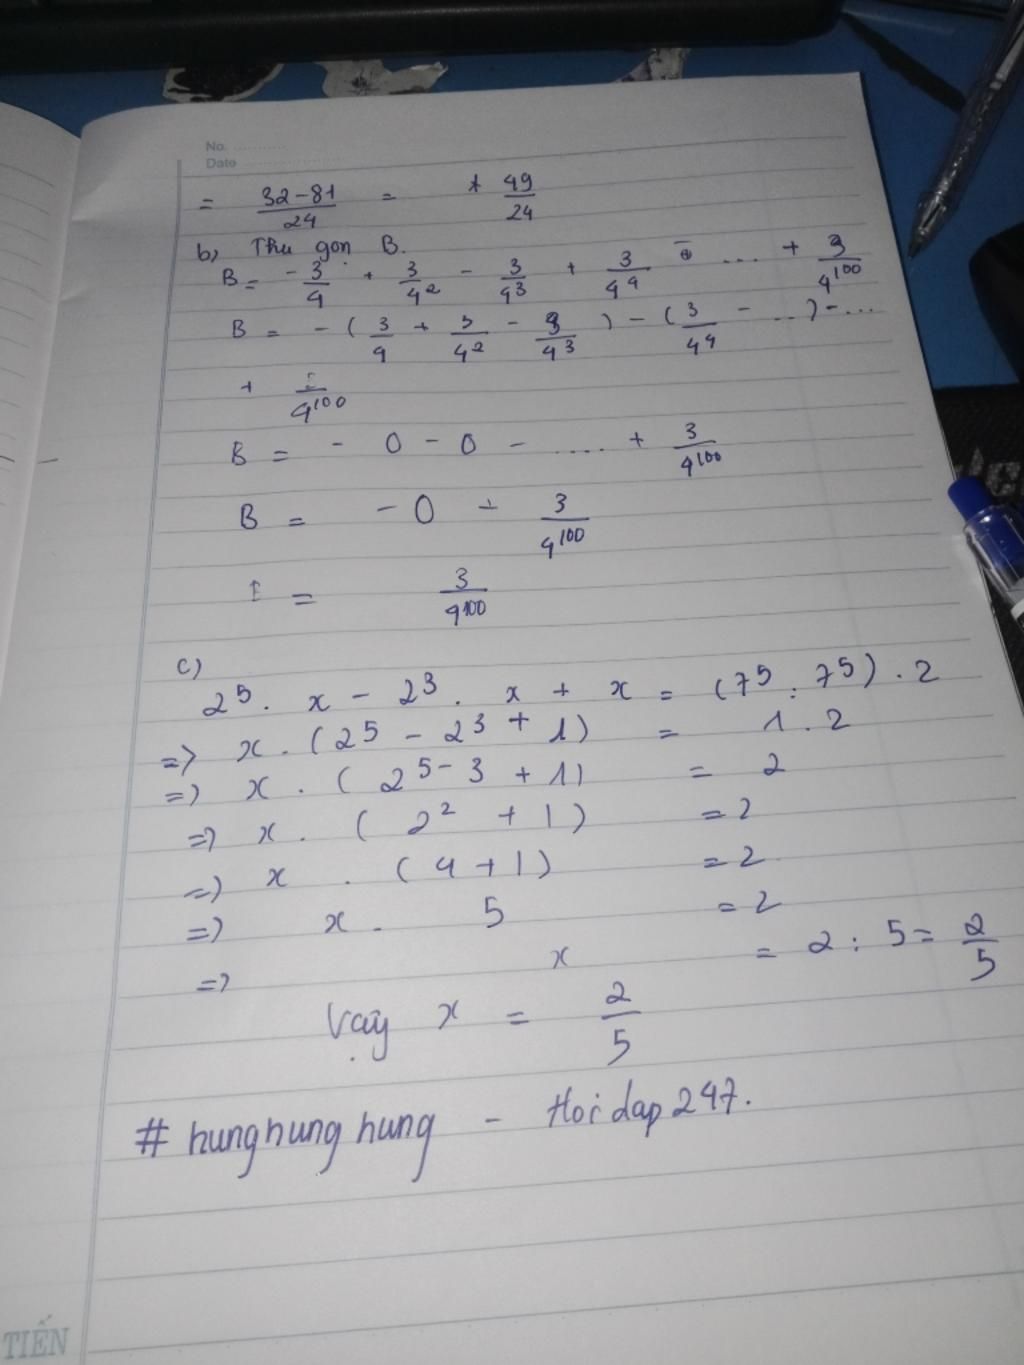 No. ............
Date ........................
= \frac{32-81}{24} = + \frac{49}{24}
b) Thu gọn B.
B = -\frac{3}{4} + \frac{3}{4^2} - \frac{3}{4^3} + \frac{3}{4^4} - ... + \frac{3}{4^{100}}
B = -(\frac{3}{4} + \frac{3}{4^2} - \frac{3}{4^3}) - (\frac{3}{4^4} - ...) - ...
+ \frac{}{4^{100}}
B = - 0 - 0 - .... + \frac{3}{4^{100}}
B = - 0 + \frac{3}{4^{100}}
= \frac{3}{4^{100}}
c)
2^5 . x - 2^3 . x + x = (7^5 : 7^5) . 2
=> x . (2^5 - 2^3 + 1) = 1 . 2
=> x . (2^{5-3} + 1) = 2
=> x . (2^2 + 1) = 2
=> x . (4 + 1) = 2
=> x . 5 = 2
=> x = 2 : 5 = \frac{2}{5}
Vậy x = \frac{2}{5}
# hunghunghung - Hoidap247.
TIẾN